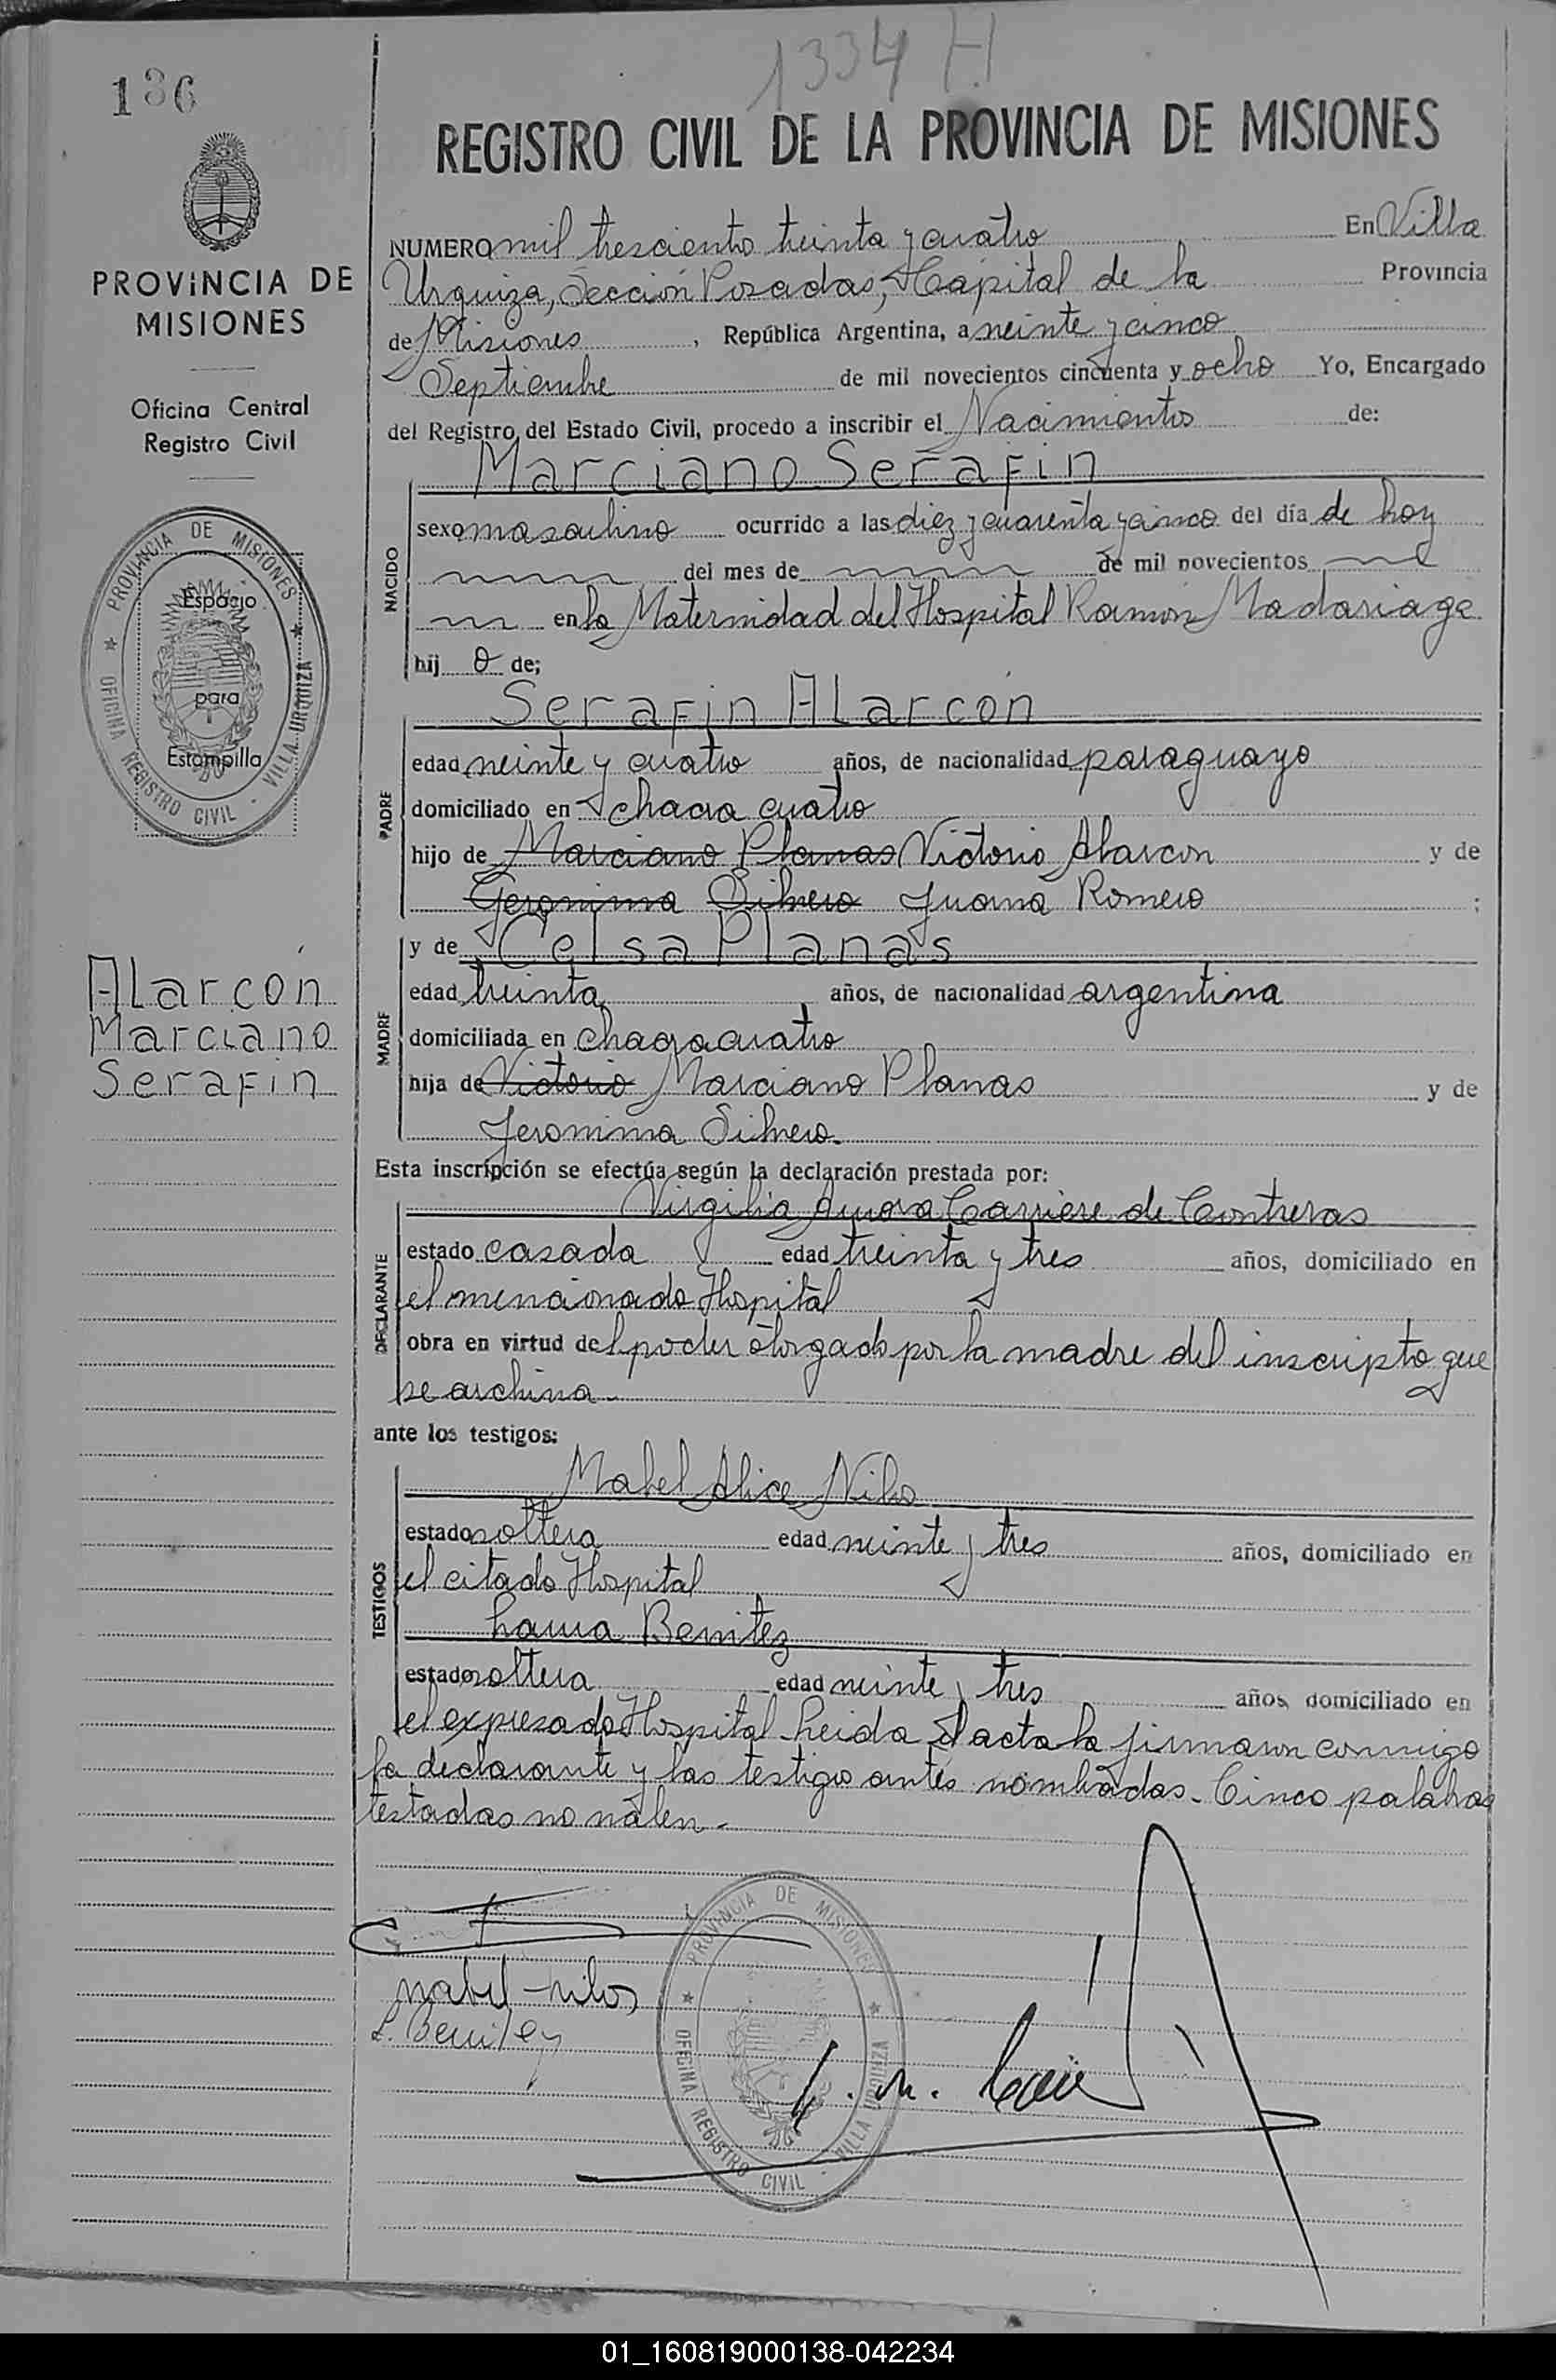 1334 H
136
REGISTRO CIVIL DE LA PROVINCIA DE MISIONES
PROVINCIA DE
MISIONES
Oficina Central
Registro Civil
PROVINCIA DE MISIONES
OFICINA REGISTRO CIVIL - VILLA URQUIZA
Espacio
para
Estampilla
Alarcón
Marciano
Serafin
NUMERO mil tresciento treinta y cuatro En Villa
Urquiza, Sección Posadas, Capital de la Provincia
de Misiones, República Argentina, a veinte y cinco
Septiembre de mil novecientos cincuenta y ocho Yo, Encargado
del Registro del Estado Civil, procedo a inscribir el Nacimiento de:
NACIDO
Marciano Serafin
sexo masculino ocurrido a las diez y cuarenta y cinco del día de hoy
del mes de de mil novecientos
en la Maternidad del Hospital Ramón Madariaga
hij o de;
PADRE
Serafin Alarcón
edad veinte y cuatro años, de nacionalidad paraguayo
domiciliado en chacra cuatro
hijo de Marciano Planas Victorio Alarcon y de
Geronima Silvero Juana Romero ;
MADRE
y de Celsa Planas
edad treinta años, de nacionalidad argentina
domiciliada en chacra cuatro
hija de Victorio Marciano Planas y de
Jeronima Silvero.
Esta inscripción se efectúa según la declaración prestada por:
DECLARANTE
Virgilia Carriere de Contreras
estado casada edad treinta y tres años, domiciliado en
el mencionado Hospital
obra en virtud del poder otorgado por la madre del inscripto que
se archiva.
ante los testigos:
TESTIGOS
Mabel Alice Nilos
estado soltera edad veinte y tres años, domiciliado en
el citado Hospital
Laura Benitez
estado soltera edad veinte y tres años, domiciliado en
el expresado Hospital Leida el acta la firmaron conmigo
la declarante y las testigo antes nombradas. Cinco palabras
testadas no valen.
mabel nilos
L. Benitez
PROVINCIA DE MISIONES
OFICINA REGISTRO CIVIL - VILLA URQUIZA
01_160819000138-042234